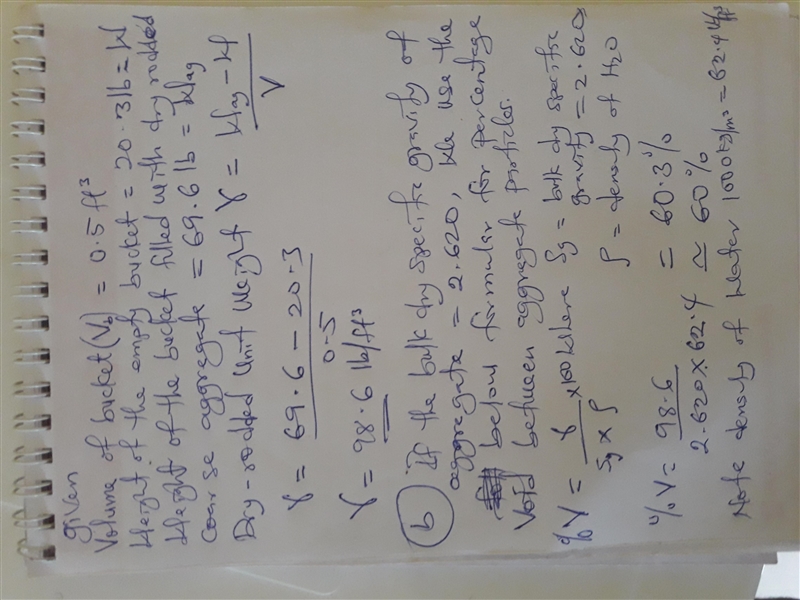 given
Volume of bucket (Vb) = 0.5 ft³
Weight of the empty bucket = 20.3 lb = W
Weight of the bucket filled with dry rodded
Coarse aggregate = 69.6 lb = Wag
Dry-rodded Unit Weight γ = Wag - Wf
V
γ = 69.6 - 20.3
0.5
γ = 98.6 lb/ft³
(b) If the bulk dry specific gravity of
aggregate = 2.620, We use the
below formular for percentage
Void between aggregate particles.
% V = γ × 100 Where Sg = bulk dry specific
Sg × ρ gravity = 2.620
ρ = density of H2O
% V = 98.6 = 60.3%
2.620 × 62.4 ≃ 60%
Note density of Water 1000 kg/m³ = 62.4 lb/ft³